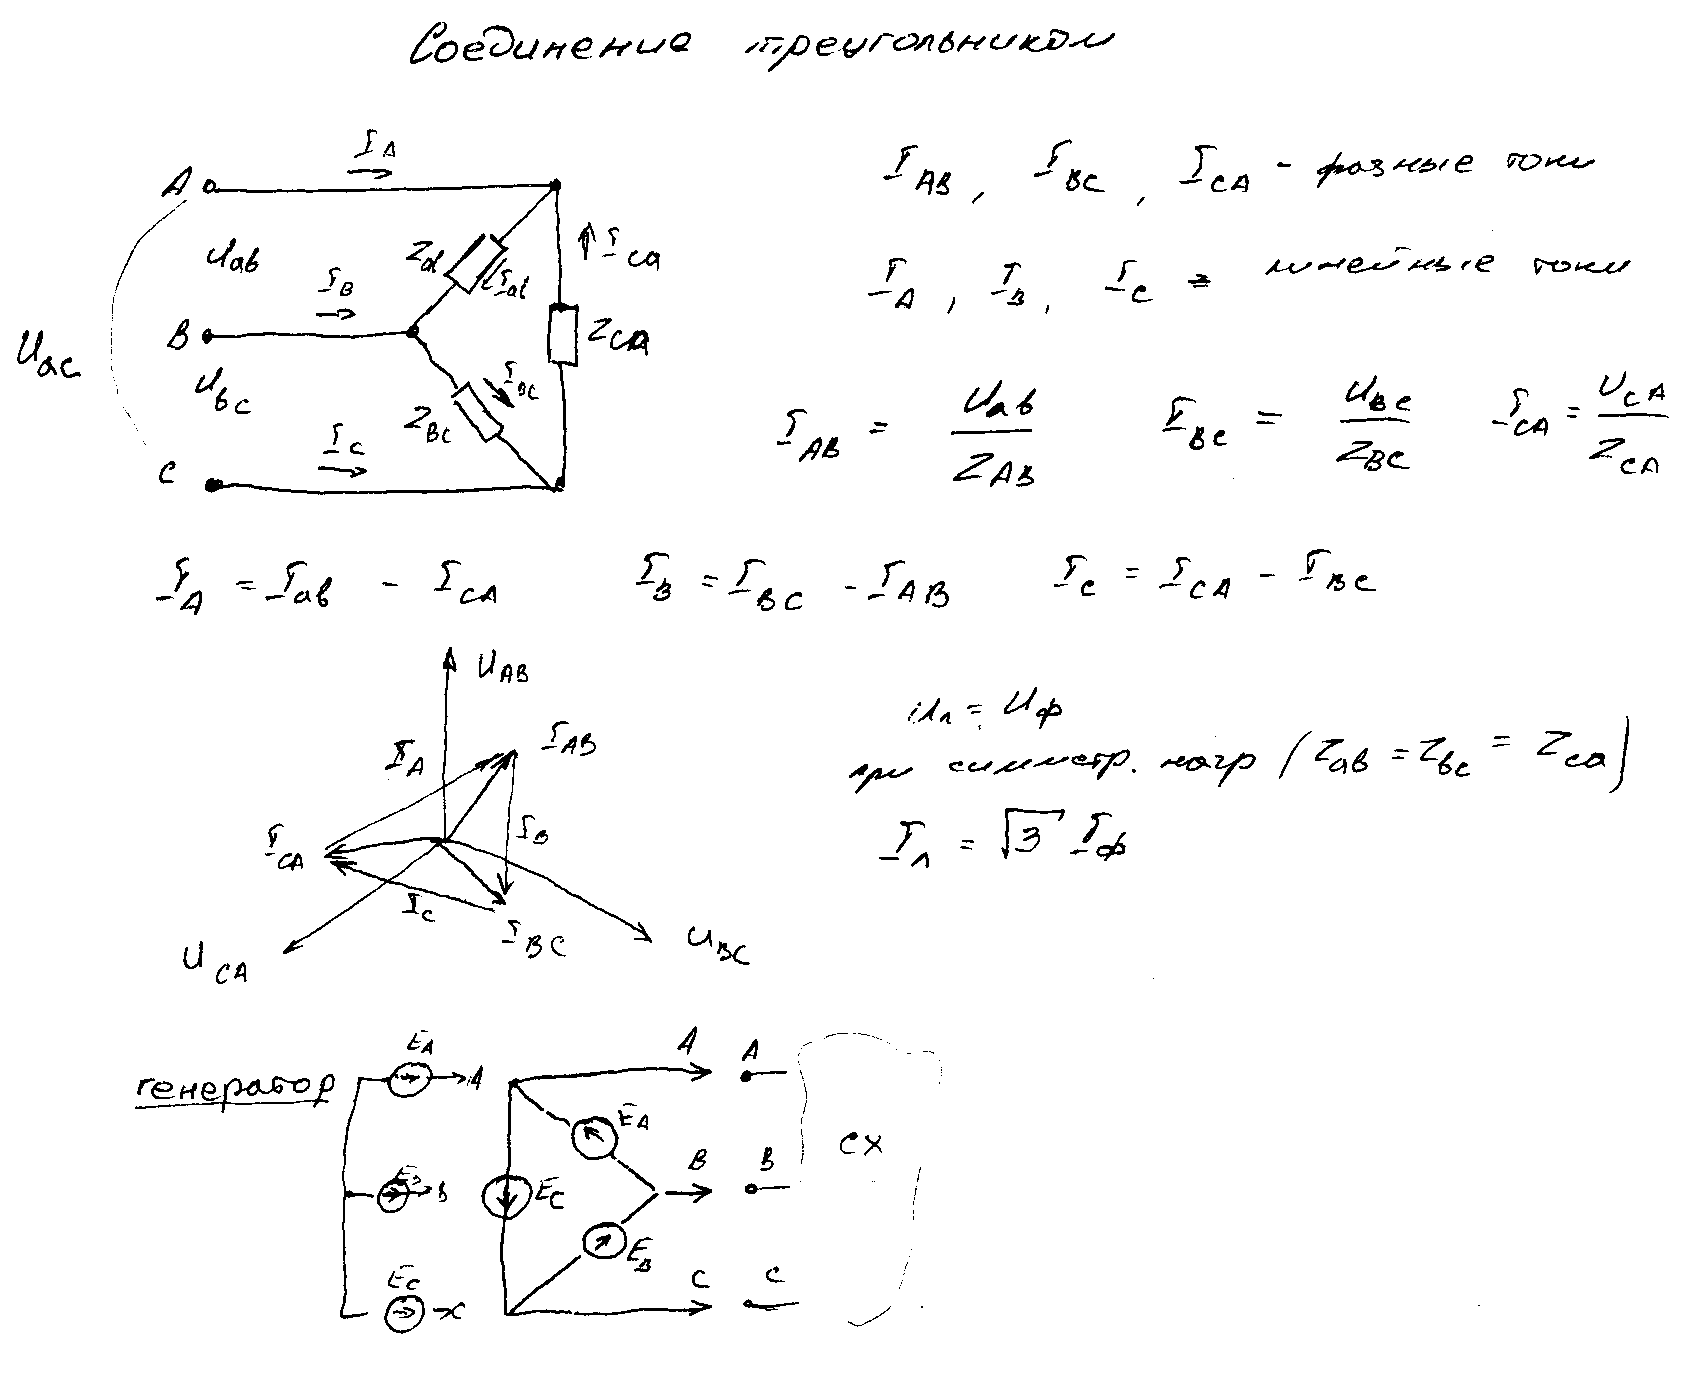 Соединение треугольником
I_A
A
U_ab
Z_ab
I_ab
I_ca
I_B
B
Z_CA
U_ac
U_bc
I_BC
Z_BC
I_C
C
I_AB , I_BC , I_CA - фазные токи
I_A , I_B , I_C - линейные токи
I_AB = U_ab / Z_AB I_BC = U_BC / Z_BC I_CA = U_CA / Z_CA
I_A = I_ab - I_CA I_B = I_BC - I_AB I_C = I_CA - I_BC
U_AB
I_A
I_AB
I_CA
I_B
I_C
I_BC
U_CA
U_BC
U_л = U_ф
при симметр. нагр (Z_ab = Z_bc = Z_ca)
I_л = √3 I_ф
генератор
E_A
A
E_B
B
E_C
A
E_A
B
E_C
E_B
C
A
B
C
сх